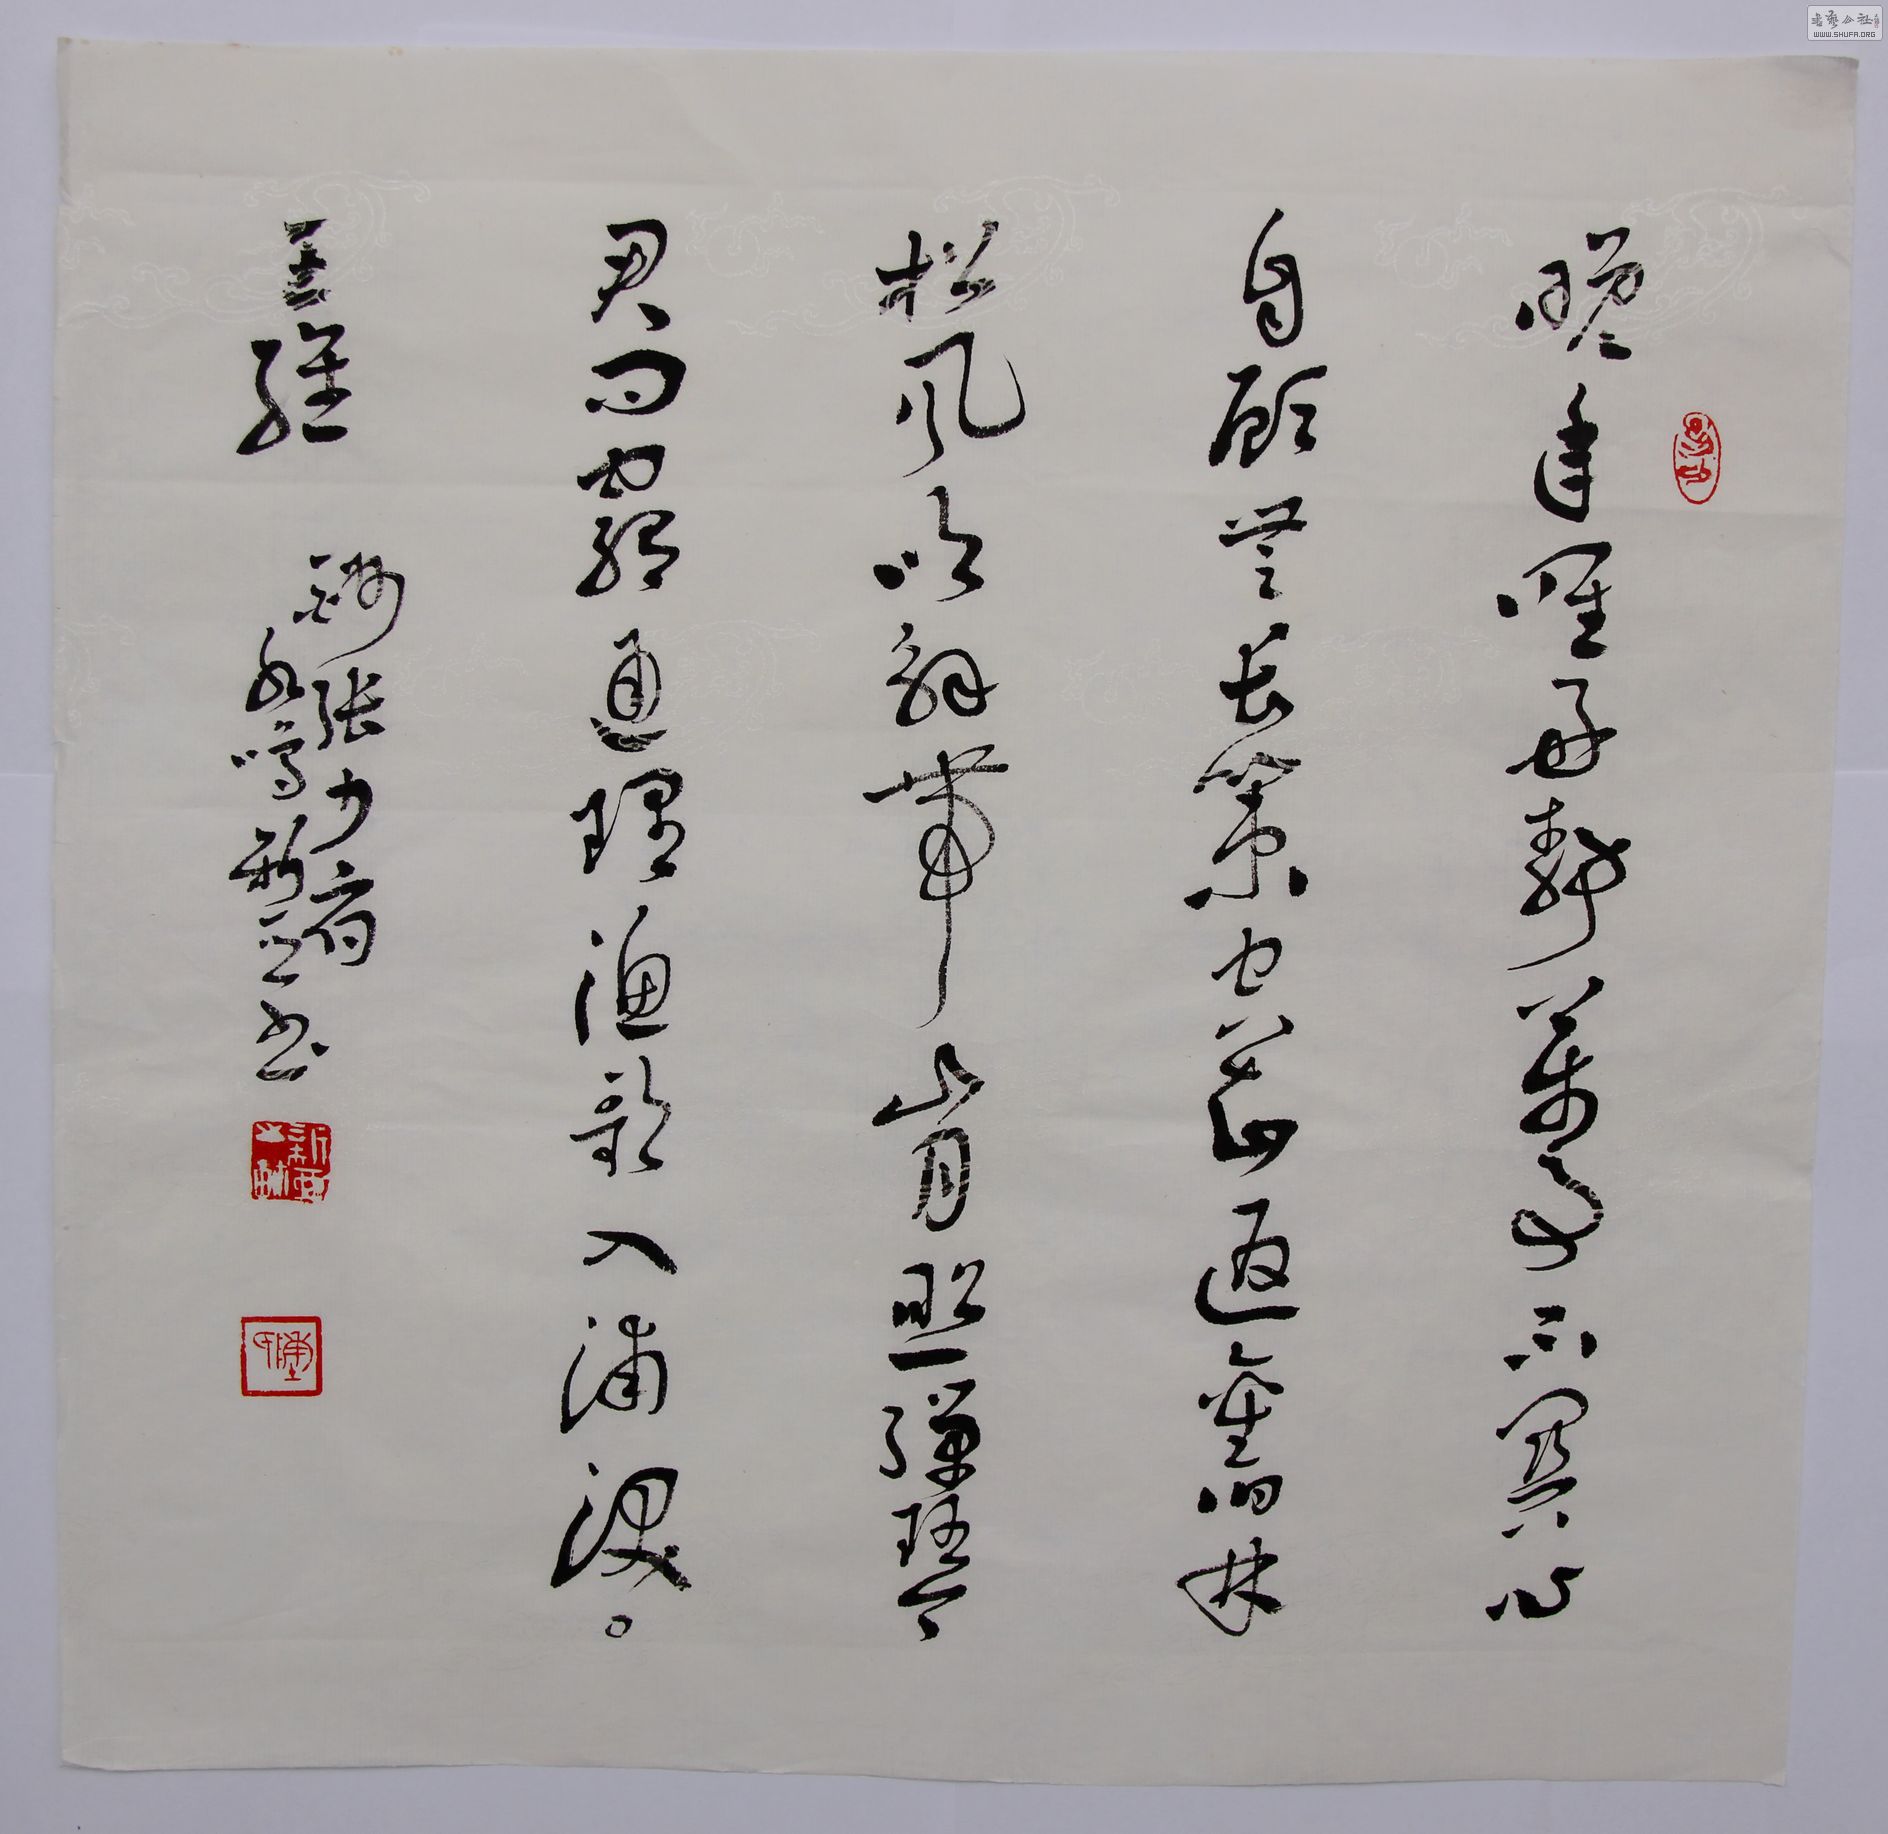 晚年唯好静万事不关心
自顾无长策空知返旧林
松风吹解带山月照弹琴
君问穷通理渔歌入浦深。
王维
酬张少府
书
WWW.SHUFA.ORG